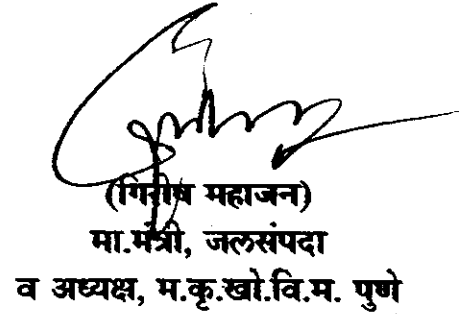 (गिरीष महाजन)
मा.मंत्री, जलसंपदा
व अध्यक्ष, म.कृ.खो.वि.म. पुणे